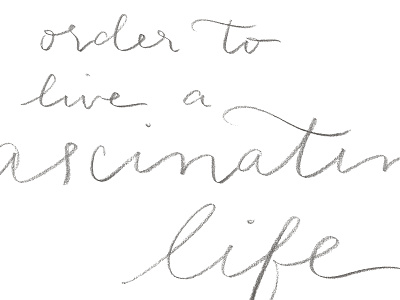 order to
live a
ascinatin
life